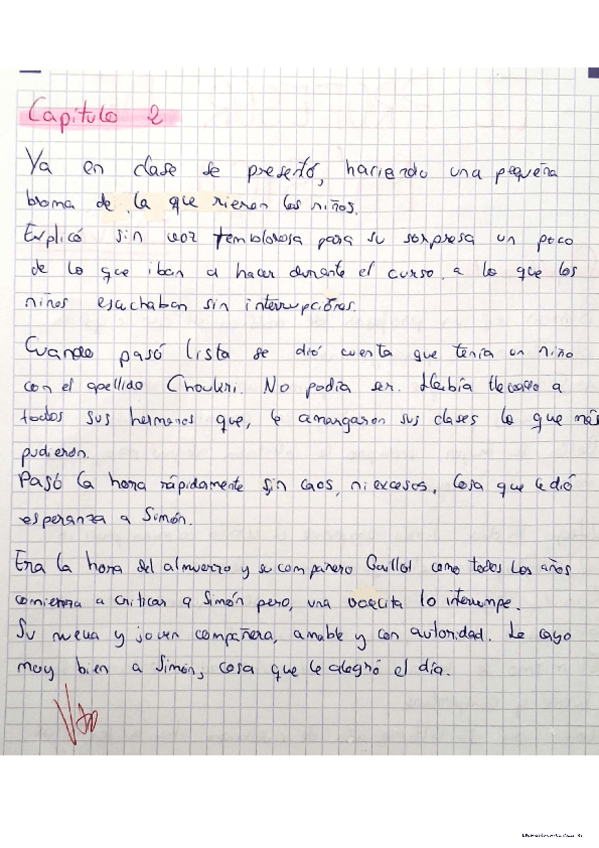 Capitulo 2
Ya en clase se presentó, haciendo una pequeña
broma de la que rieron los niños.
Explicó sin voz temblorosa para su sorpresa un poco
de lo que iban a hacer durante el curso, a lo que los
niños escuchaban sin interrupciones.
Cuando pasó lista se dió cuenta que tenía un niño
con el apellido Choukri. No podía ser. Había llevado a
todos sus hermanos que, le amargaron sus clases lo que más
pudieron.
Pasó la hora rápidamente sin caos, ni excesos, cosa que le dió
esperanza a Simón.
Era la hora del almuerzo y su compañero Gaillot como todos los años
comienza a criticar a Simón pero, una vocecita lo interrumpe.
Su nueva y joven compañera, amable y con autoridad. Le cayo
muy bien a Simón, cosa que le alegró el día.